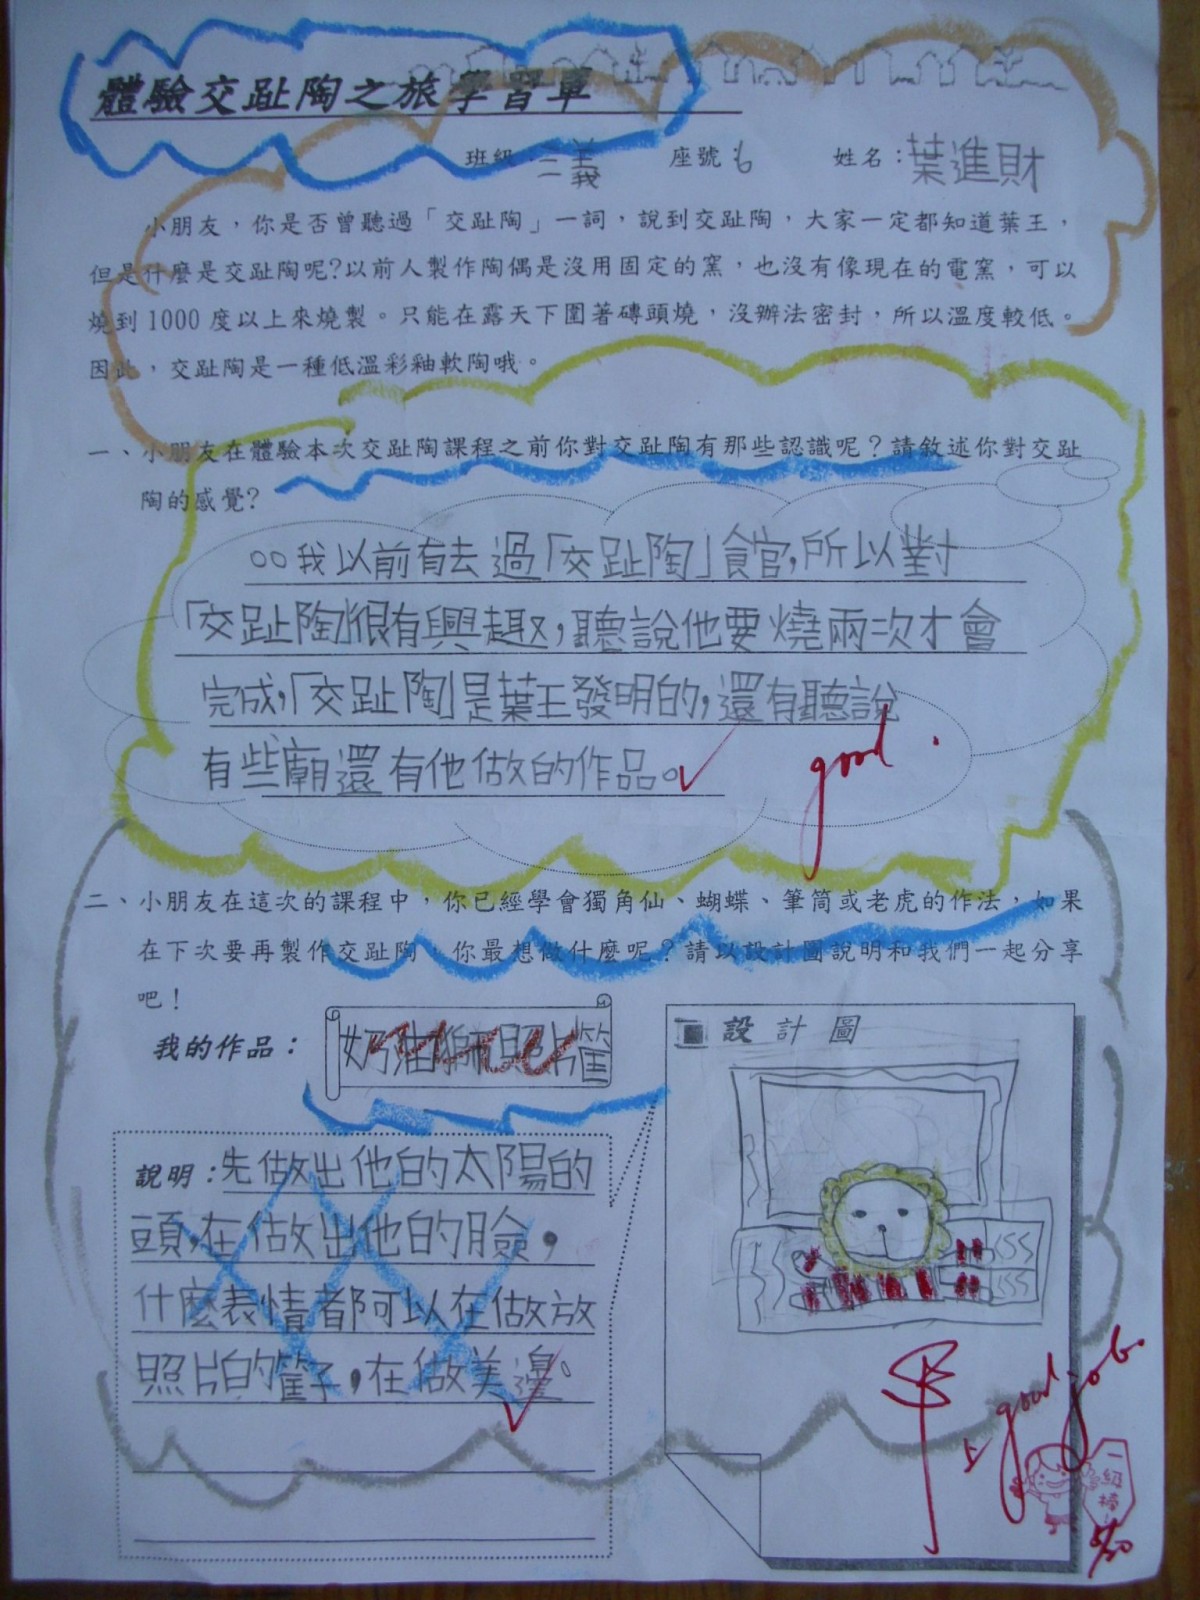 體驗交趾陶之旅學習單
班級:三義 座號:6 姓名:葉進財
小朋友，你是否曾聽過「交趾陶」一詞，說到交趾陶，大家一定都知道葉王，
但是什麼是交趾陶呢?以前人製作陶偶是沒用固定的窯，也沒有像現在的電窯，可以
燒到1000度以上來燒製。只能在露天下圍著磚頭燒，沒辦法密封，所以溫度較低。
因此，交趾陶是一種低溫彩釉軟陶哦。
一、小朋友在體驗本次交趾陶課程之前你對交趾陶有那些認識呢？請敘述你對交趾
陶的感覺?
我以前有去過「交趾陶」食官，所以對
「交趾陶」很有興趣，聽說他要燒兩次才會
完成，「交趾陶」是葉王發明的，還有聽說
有些廟還有他做的作品。
good.
二、小朋友在這次的課程中，你已經學會獨角仙、蝴蝶、筆筒或老虎的作法，如果
在下次要再製作交趾陶，你最想做什麼呢？請以設計圖說明和我們一起分享
吧！
我的作品：
照片筐
設計圖
說明：先做出他的太陽的
頭，在做出他的臉，
什麼表情都可以在做放
照片的筐子，在做美邊。
甲上 good job.
一級棒
5/30